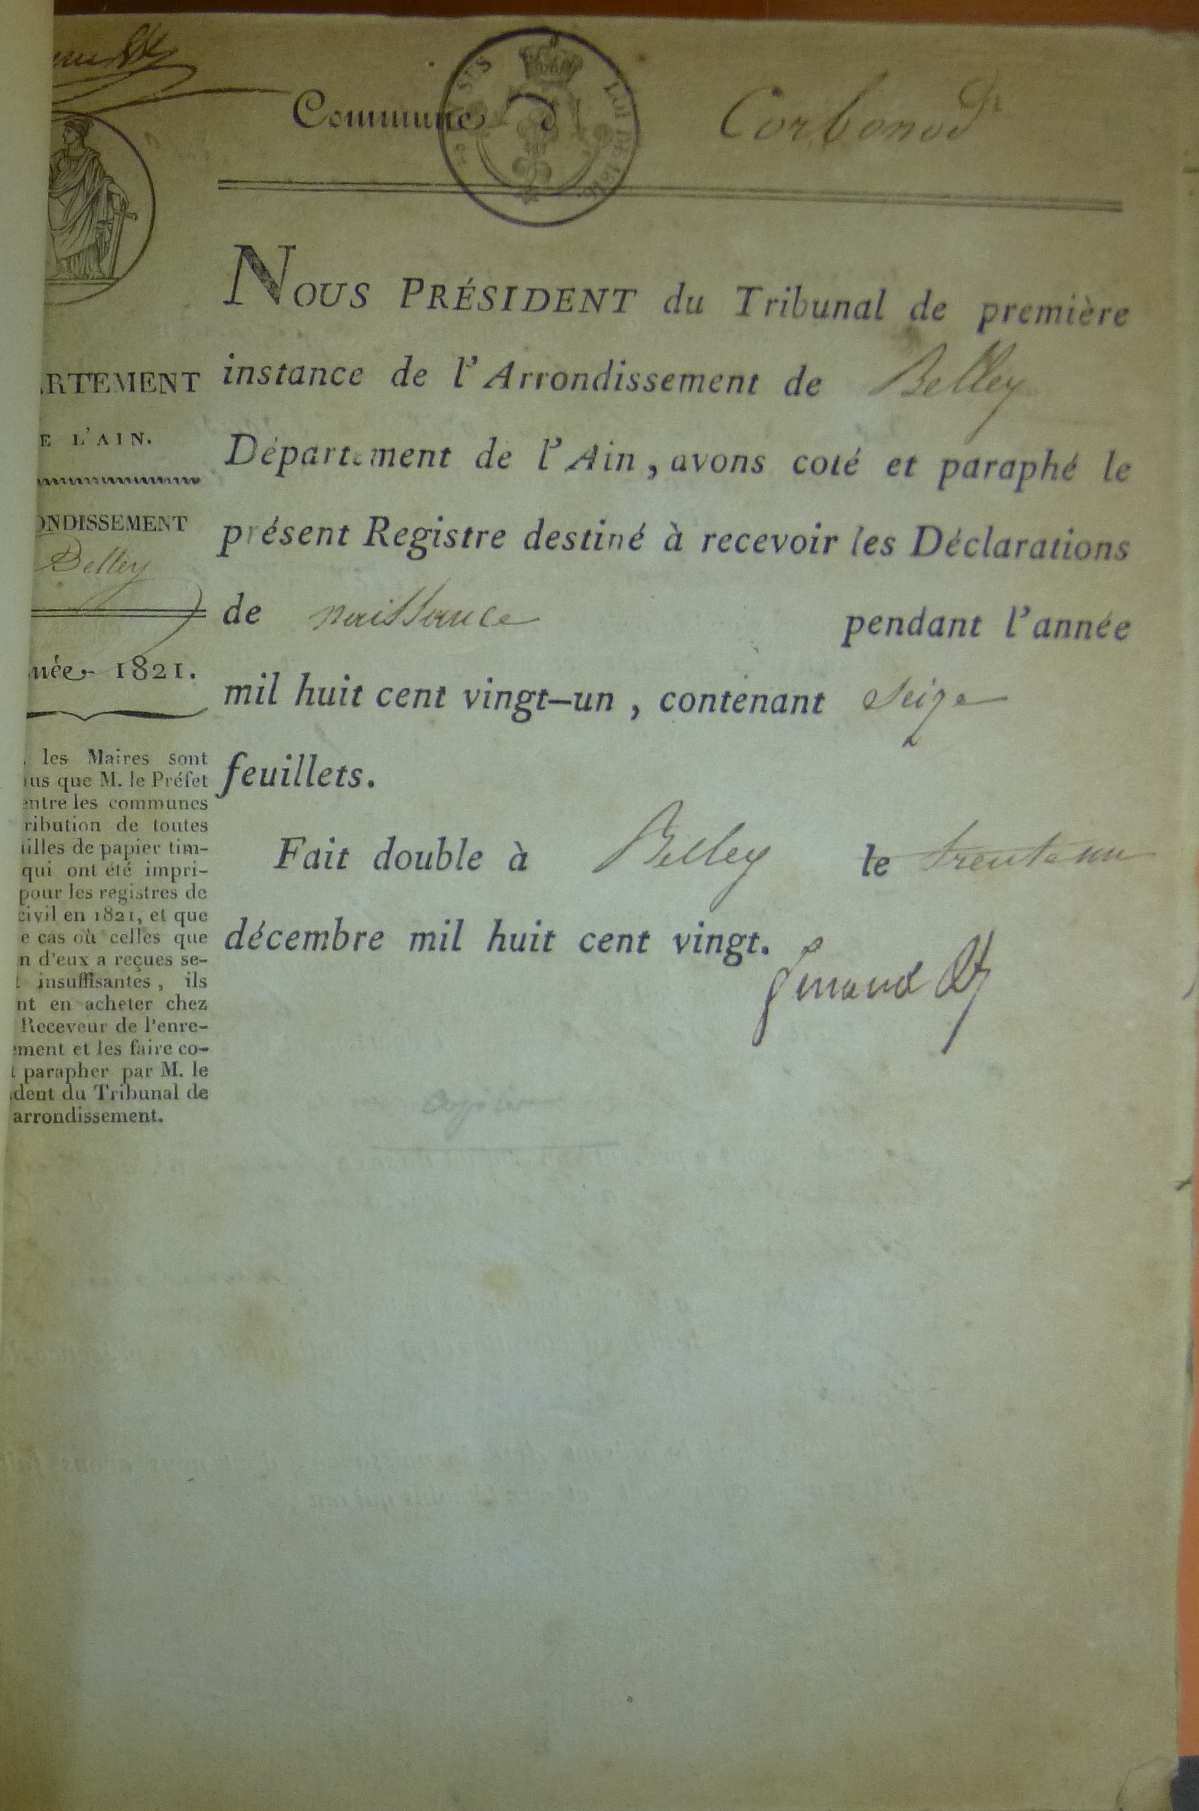 Commune d Corbonod
NOUS PRÉSIDENT du Tribunal de première
instance de l'Arrondissement de Belley
Département de l'Ain, avons coté et paraphé le
présent Registre destiné à recevoir les Déclarations
de naissance pendant l'année
mil huit cent vingt-un, contenant seize
feuillets.
Fait double à Belley le trente un
décembre mil huit cent vingt.
ARTEMENT
E L'AIN.
ONDISSEMENT
Belley
née 1821.
les Maires sont
us que M. le Préfet
entre les communes
ribution de toutes
illes de papier tim-
qui ont été impri-
pour les registres de
civil en 1821, et que
e cas où celles que
n d'eux a reçues se-
t insuffisantes, ils
nt en acheter chez
Receveur de l'enre-
ement et les faire co-
t parapher par M. le
dent du Tribunal de
arrondissement.
LOI DE 1816